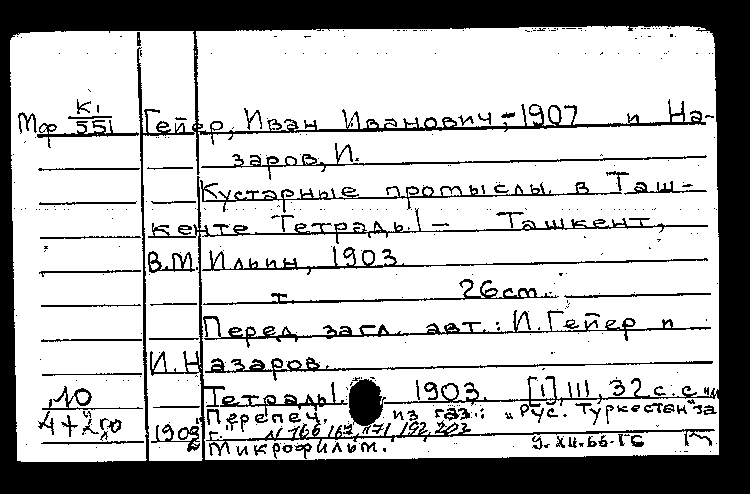 Мф К1/551 Гейер, Иван Иванович, -1907 и На-
заров, И.
Кустарные промыслы в Таш-
кенте. Тетрадь I – Ташкент,
В.М. Ильин, 1903.
т. 26 см.
Перед загл. авт.: И. Гейер и
И. Назаров.
Тетрадь I. 1903. [1], III, 32 с. с илл
"Перепеч. из газ.: "Рус. Туркестан" за
1902 г. N 166, 167, 171, 192, 203
Микрофильм. 9.XII.66-ГБ